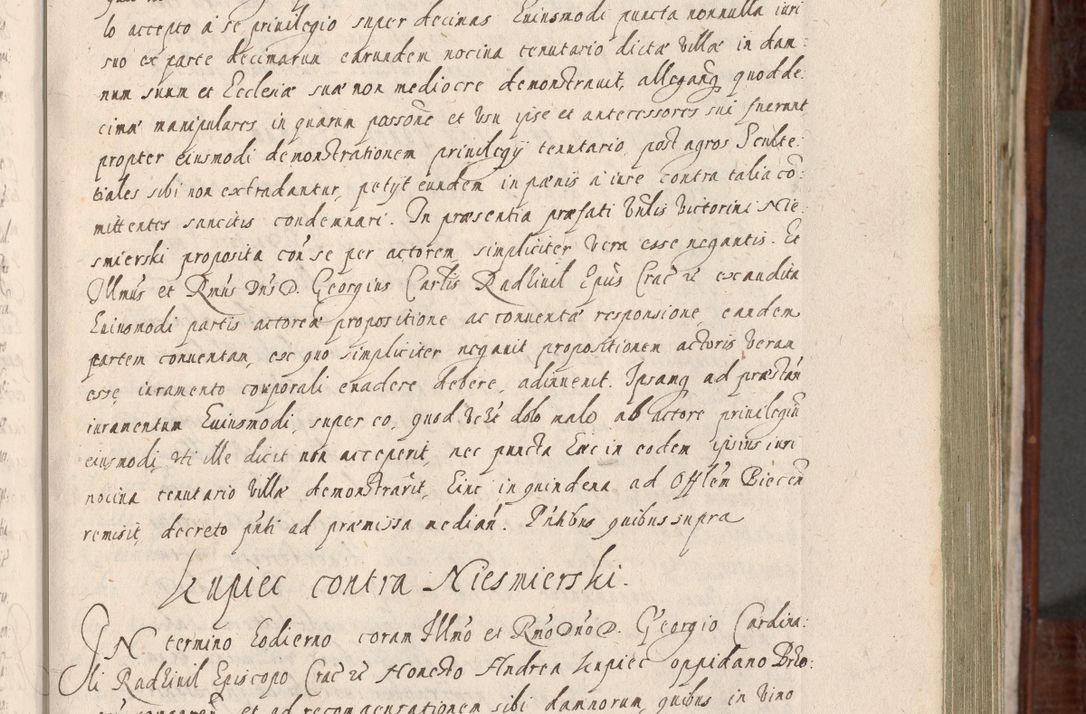 lo accepto à se priuilegio super decimas huiusmodi puncta nonnulla iuri
suo ex parte decimarum earundem nociua tenutario dictæ villæ in dam:
num suum et Ecclesiæ suæ non mediocre demonstrauit, allegang quod de:
cimæ manipulares, in quarum possōne et usu ipse et antecessores sui fuerunt
propter eiusmodi demonstrationem priuilegij tenutario, post agros Sculte:
tiales sibi non extradantur, petijt eundem in pænis à iure contra talia cō:
mittentes sancitis condemnari. In præsentia præfati Nblis Victorini Nie:
smierski proposita con se per actorem, simpliciter vera esse negantis. Et
Illmus et Rmus Dnus D. Georgius Carlis Radziuil Epus Crac etc exaudita
huiusmodi partis actoreæ propositione ac conuentæ responsione, eandem
partem conuentam, ex quo simpliciter negauit propositionem actoris veram
esse, iuramento corporali euadere debere, adinuenit. Ipsamq ad præstan
iuramentum huiusmodi, super eo, quod dolo malo ab actore priuilegiu
eiusmodi, uti ille dicit non acceperit, nec puncta hæc in eodem ipsius iuri
nociua tenutario villæ demonstrarit, hinc in quindena ad Offlem Biecen
remisit, decreto pnti ad præmissa median. Pntibus quibus supra
Kupiec contra Niesmierski.
IN termino hodierno coram Illmo et Rmo Dno D. Georgio Cardina:
li Radziuil Episcopo Crac etc Honesto Andrea Kupiec oppidano
et ad recompensationem sibi damnorum, quibus in vino